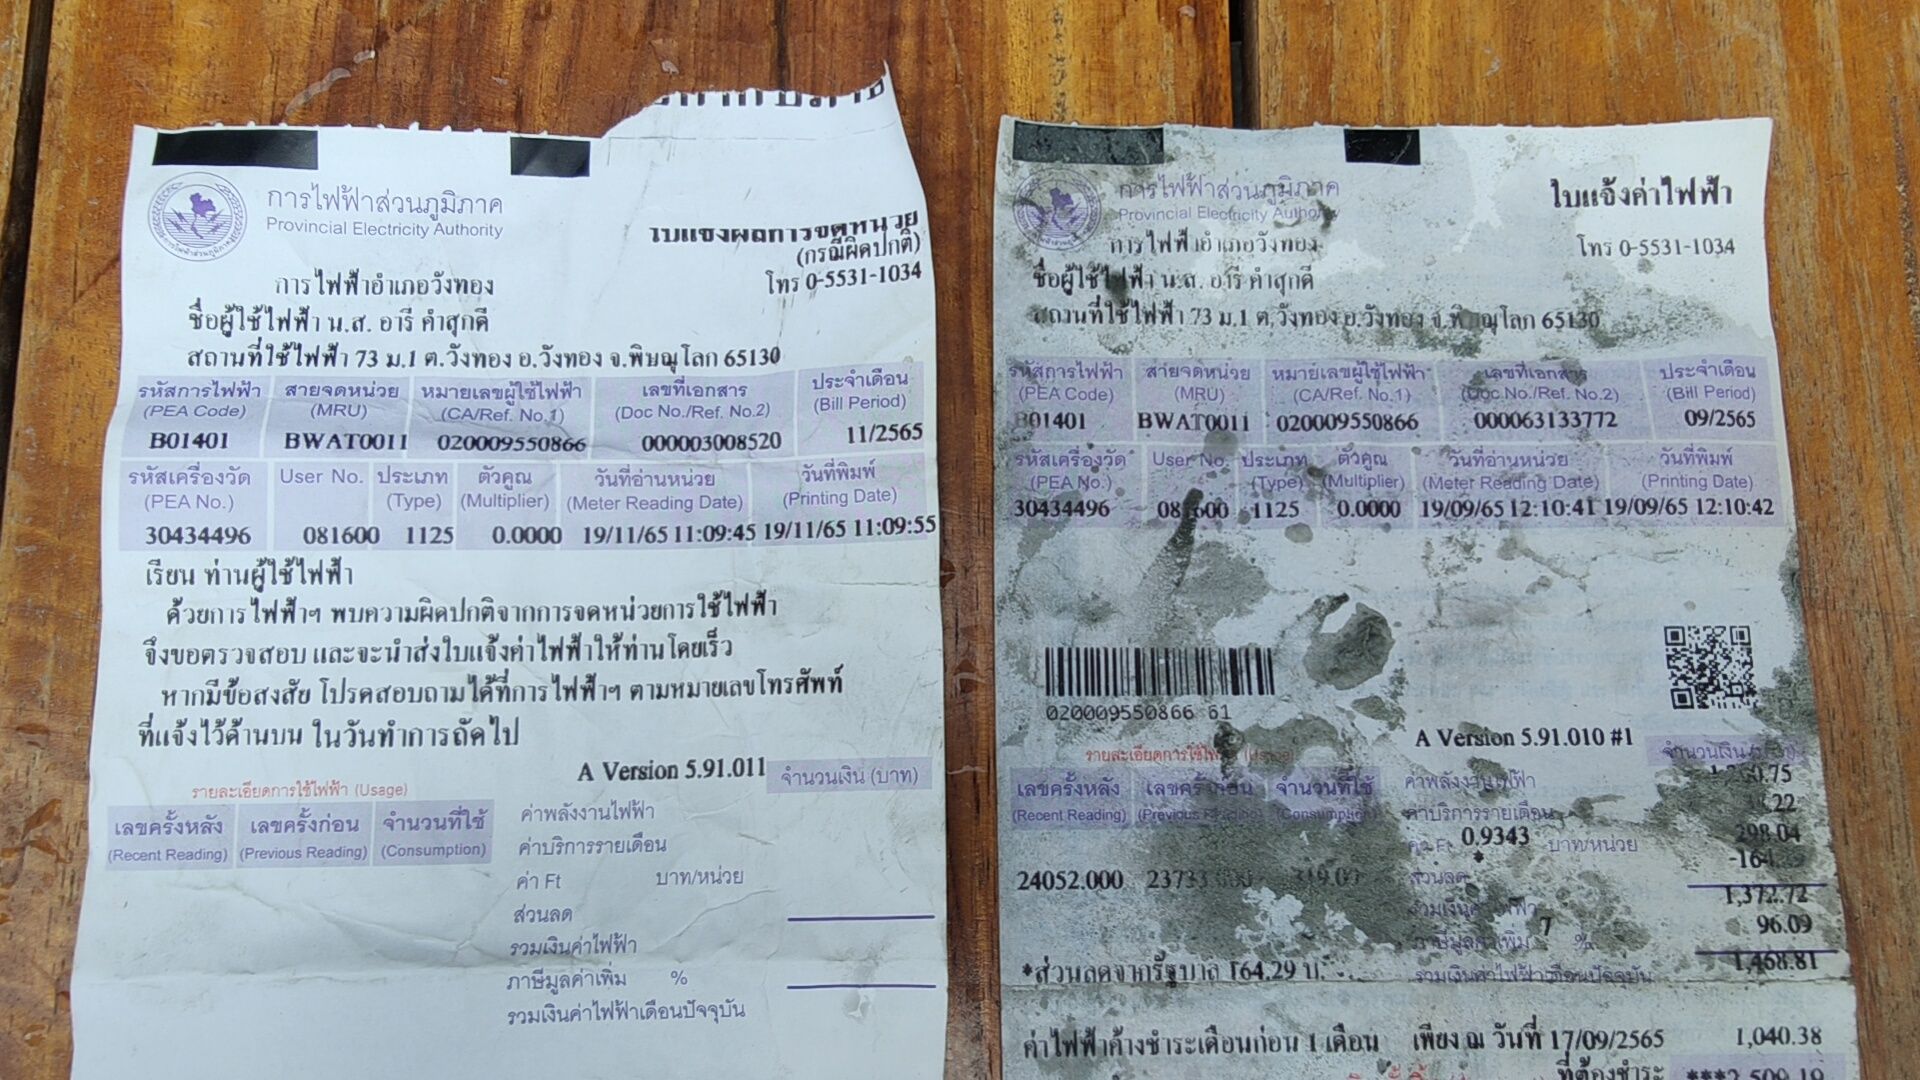 การไฟฟ้าส่วนภูมิภาค
Provincial Electricity Authority
ใบแจ้งผลการจดหน่วย
(กรณีผิดปกติ)
การไฟฟ้าอำเภอวังทอง
โทร 0-5531-1034
ชื่อผู้ใช้ไฟฟ้า น.ส. อารี คำสุกดี
สถานที่ใช้ไฟฟ้า 73 ม.1 ต.วังทอง อ.วังทอง จ.พิษณุโลก 65130
รหัสการไฟฟ้า สายจดหน่วย หมายเลขผู้ใช้ไฟฟ้า เลขที่เอกสาร ประจำเดือน
(PEA Code) (MRU) (CA/Ref. No.1) (Doc No./Ref. No.2) (Bill Period)
B01401 BWAT0011 020009550866 000003008520 11/2565
รหัสเครื่องวัด User No. ประเภท ตัวคูณ วันที่อ่านหน่วย วันที่พิมพ์
(PEA No.) (Type) (Multiplier) (Meter Reading Date) (Printing Date)
30434496 081600 1125 0.0000 19/11/65 11:09:45 19/11/65 11:09:55
เรียน ท่านผู้ใช้ไฟฟ้า
ด้วยการไฟฟ้าฯ พบความผิดปกติจากการจดหน่วยการใช้ไฟฟ้า
จึงขอตรวจสอบ และจะนำส่งใบแจ้งค่าไฟฟ้าให้ท่านโดยเร็ว
หากมีข้อสงสัย โปรดสอบถามได้ที่การไฟฟ้าฯ ตามหมายเลขโทรศัพท์
ที่แจ้งไว้ด้านบน ในวันทำการถัดไป
A Version 5.91.011 จำนวนเงิน (บาท)
รายละเอียดการใช้ไฟฟ้า (Usage)
เลขครั้งหลัง เลขครั้งก่อน จำนวนที่ใช้
(Recent Reading) (Previous Reading) (Consumption)
ค่าพลังงานไฟฟ้า
ค่าบริการรายเดือน
ค่า Ft บาท/หน่วย
ส่วนลด
รวมเงินค่าไฟฟ้า
ภาษีมูลค่าเพิ่ม %
รวมเงินค่าไฟฟ้าเดือนปัจจุบัน
การไฟฟ้าส่วนภูมิภาค
Provincial Electricity Authority
ใบแจ้งค่าไฟฟ้า
การไฟฟ้าอำเภอวังทอง
โทร 0-5531-1034
ชื่อผู้ใช้ไฟฟ้า น.ส. อารี คำสุกดี
สถานที่ใช้ไฟฟ้า 73 ม.1 ต.วังทอง อ.วังทอง จ.พิษณุโลก 65130
รหัสการไฟฟ้า สายจดหน่วย หมายเลขผู้ใช้ไฟฟ้า เลขที่เอกสาร ประจำเดือน
(PEA Code) (MRU) (CA/Ref. No.1) (Doc No./Ref. No.2) (Bill Period)
B01401 BWAT0011 020009550866 000063133772 09/2565
รหัสเครื่องวัด User No. ประเภท ตัวคูณ วันที่อ่านหน่วย วันที่พิมพ์
(PEA No.) (Type) (Multiplier) (Meter Reading Date) (Printing Date)
30434496 081600 1125 0.0000 19/09/65 12:10:41 19/09/65 12:10:42
020009550866 61
A Version 5.91.010 #1
รายละเอียดการใช้ไฟฟ้า (Usage) จำนวนเงิน
เลขครั้งหลัง เลขครั้งก่อน จำนวนที่ใช้
(Recent Reading) (Previous Reading) (Consumption)
ค่าพลังงานไฟฟ้า
ค่าบริการรายเดือน
ค่า Ft 0.9343 บาท/หน่วย 298.04
24052.000 319.00
* ส่วนลด
รวมเงินค่าไฟฟ้า 1,372.72
ภาษีมูลค่าเพิ่ม 7 % 96.09
*ส่วนลดจากรัฐบาล 164.29 บ. รวมเงินค่าไฟฟ้าเดือนปัจจุบัน 1,468.81
ค่าไฟฟ้าค้างชำระเดือนก่อน 1 เดือน เพียง ณ วันที่ 17/09/2565 1,040.38
ที่ต้องชำระ ***2,509.19